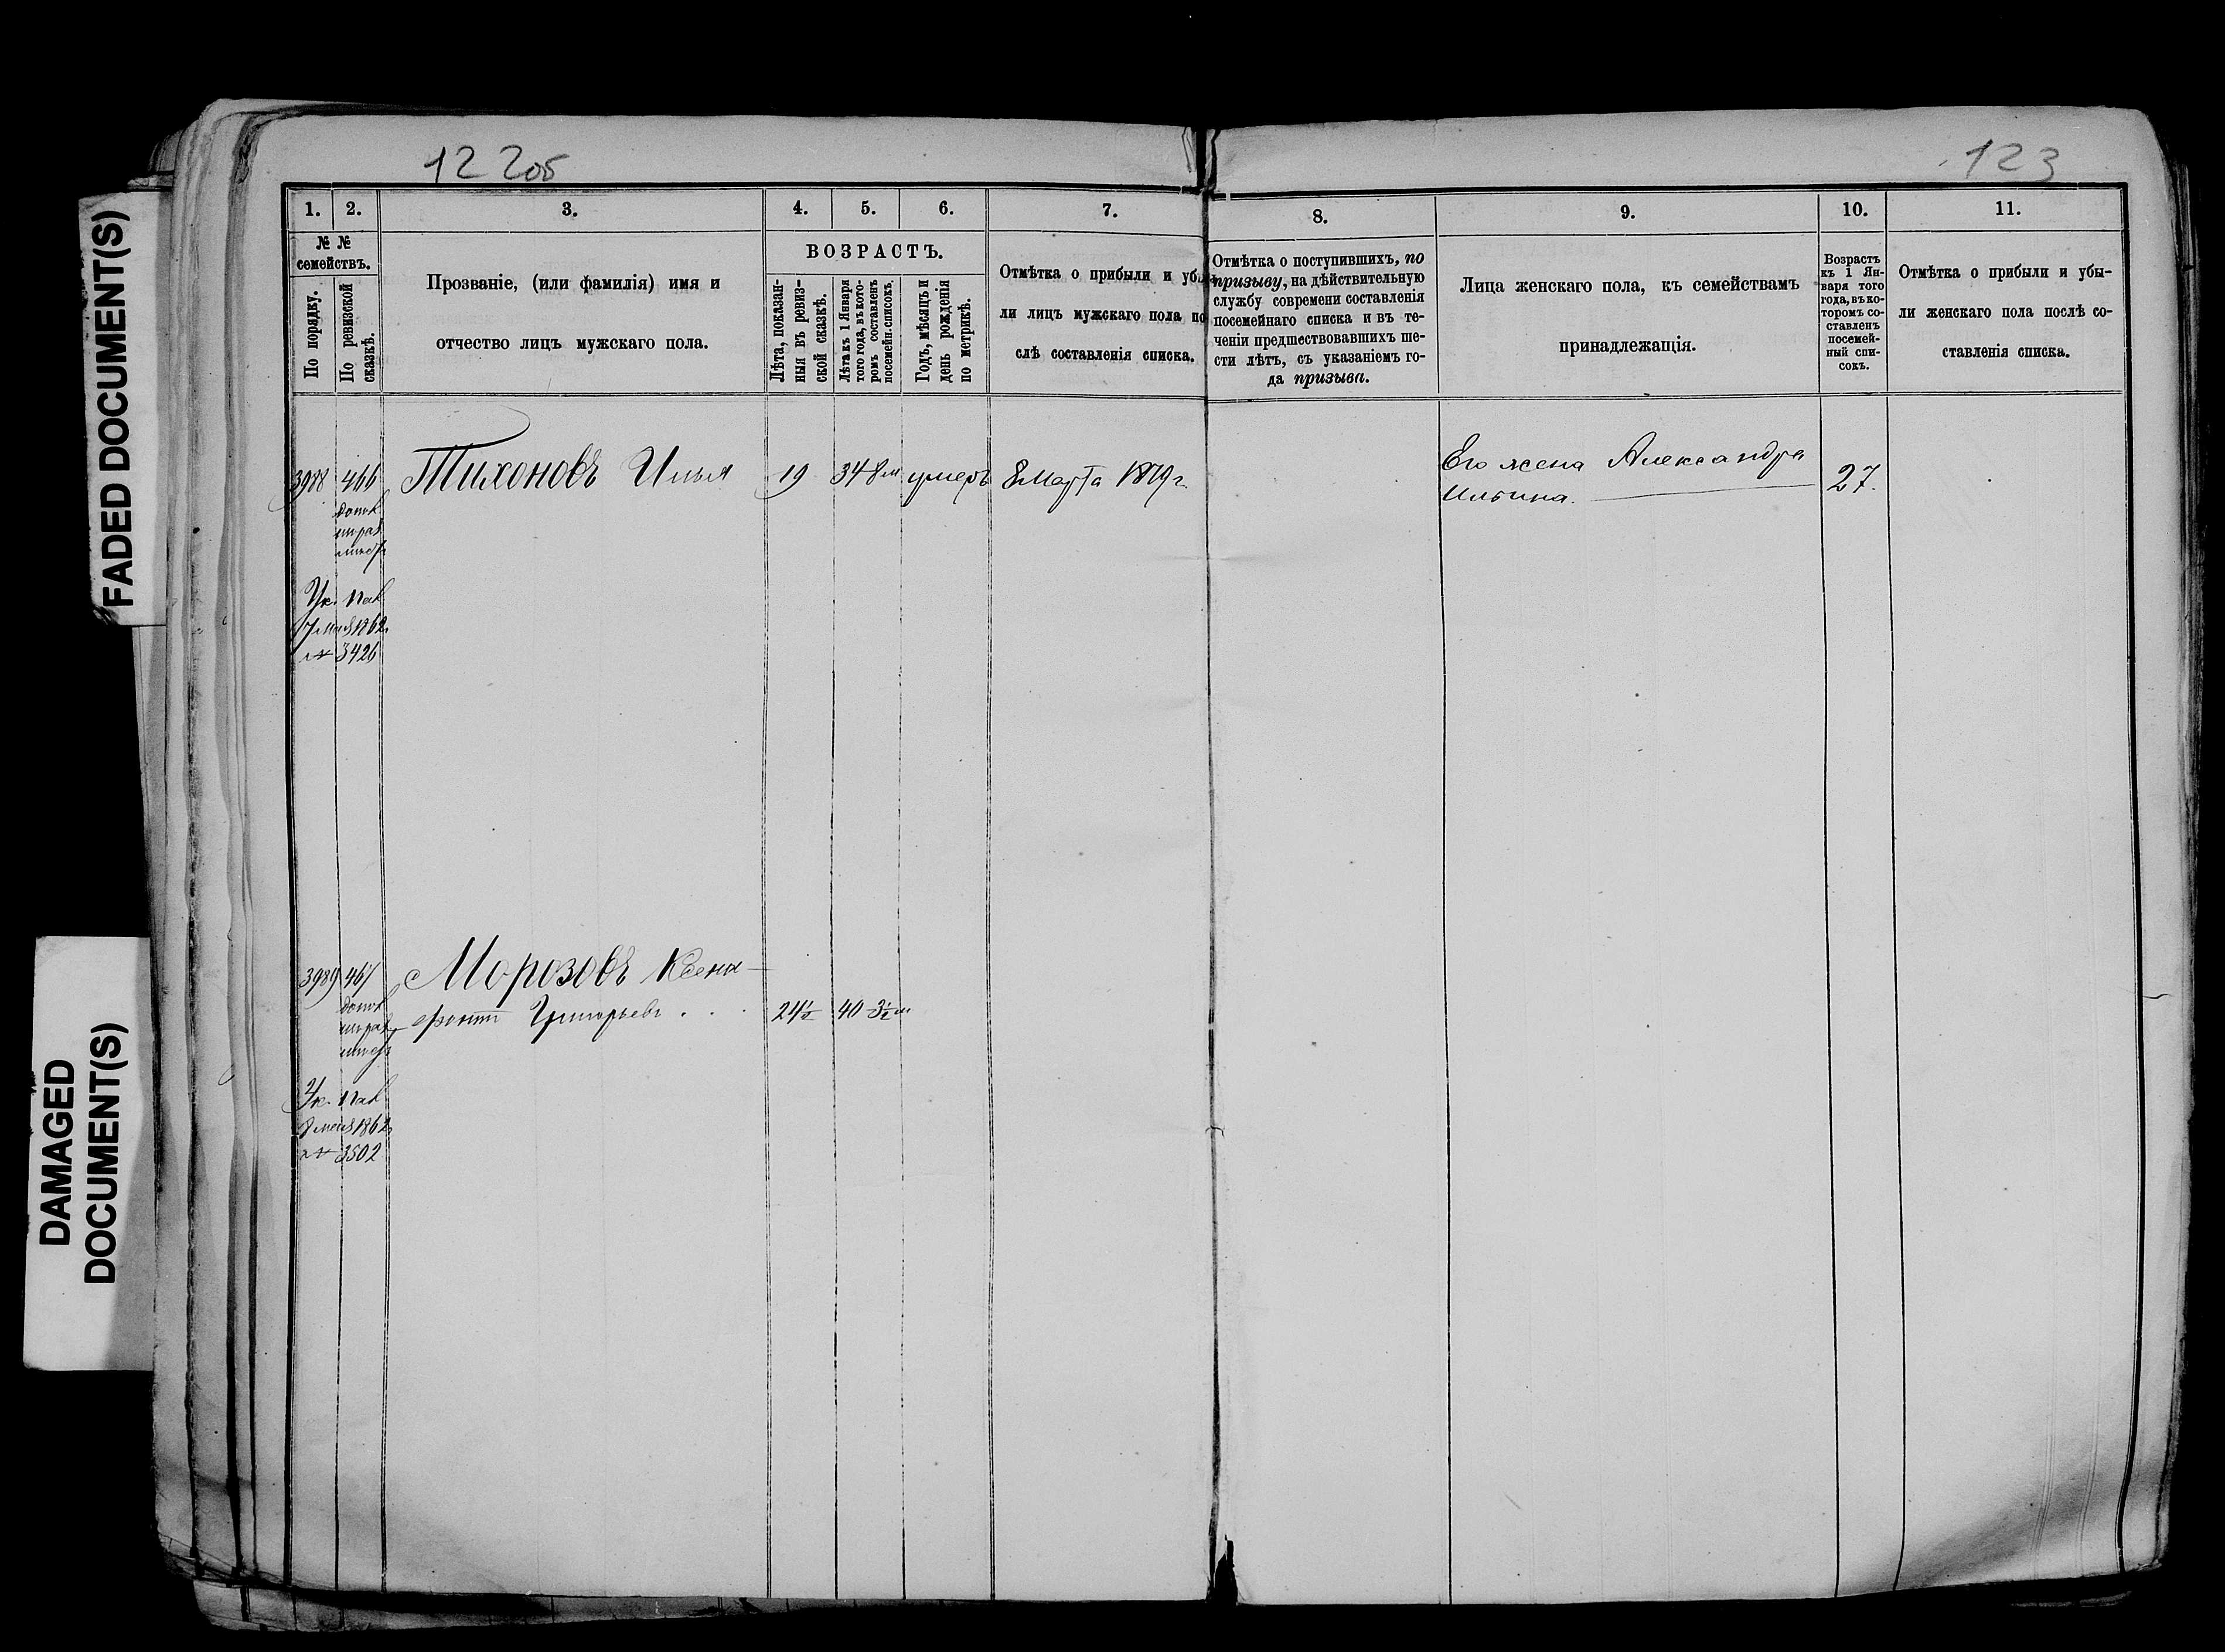 FADED DOCUMENT(S)
DAMAGED
DOCUMENT(S)
122об
123
1.
2.
3.
4.
5.
6.
7.
8.
9.
10.
11.
№ №
семействъ.
По порядку.
По ревизской
сказкѣ.
Прозваніе, (или фамилія) имя и
отчество лицъ мужскаго пола.
ВОЗРАСТЪ.
Лѣта, показан-
ныя въ ревиз-
ской сказкѣ.
Лѣта къ 1 Января
того года, въ кото-
ромъ составленъ
посемейн. списокъ.
Годъ, мѣсяцъ и
день рожденія
по метрикѣ.
Отмѣтка о прибыли и уб
ли лицъ мужскаго пола по
слѣ составленія списка.
Отмѣтка о поступившихъ, по
призыву, на дѣйствительную
службу современи составленія
посемейнаго списка и въ те-
ченіи предшествовавшихъ ше-
сти лѣтъ, съ указаніемъ го-
да призыва.
Лица женскаго пола, къ семействамъ
принадлежащія.
Возрастъ
къ 1 Ян-
варя того
года, въ ко-
торомъ со-
ставленъ
посемей-
ный спи-
сокъ.
Отмѣтка о прибыли и убы-
ли женскаго пола послѣ со-
ставленія списка.
3988 466 Тихоновъ Илья 19 34 8м умеръ 8 Марта 1879 г.
Его жена Александра
Ильина. 27.
Ук. Пал
7 мая 1862
№ 3426
3989 467 Морозовъ Ксено-
фонтъ Григорьевъ . . . 24½ 40 3½ м
Ук. Пал
8 мая 1862
№ 3502